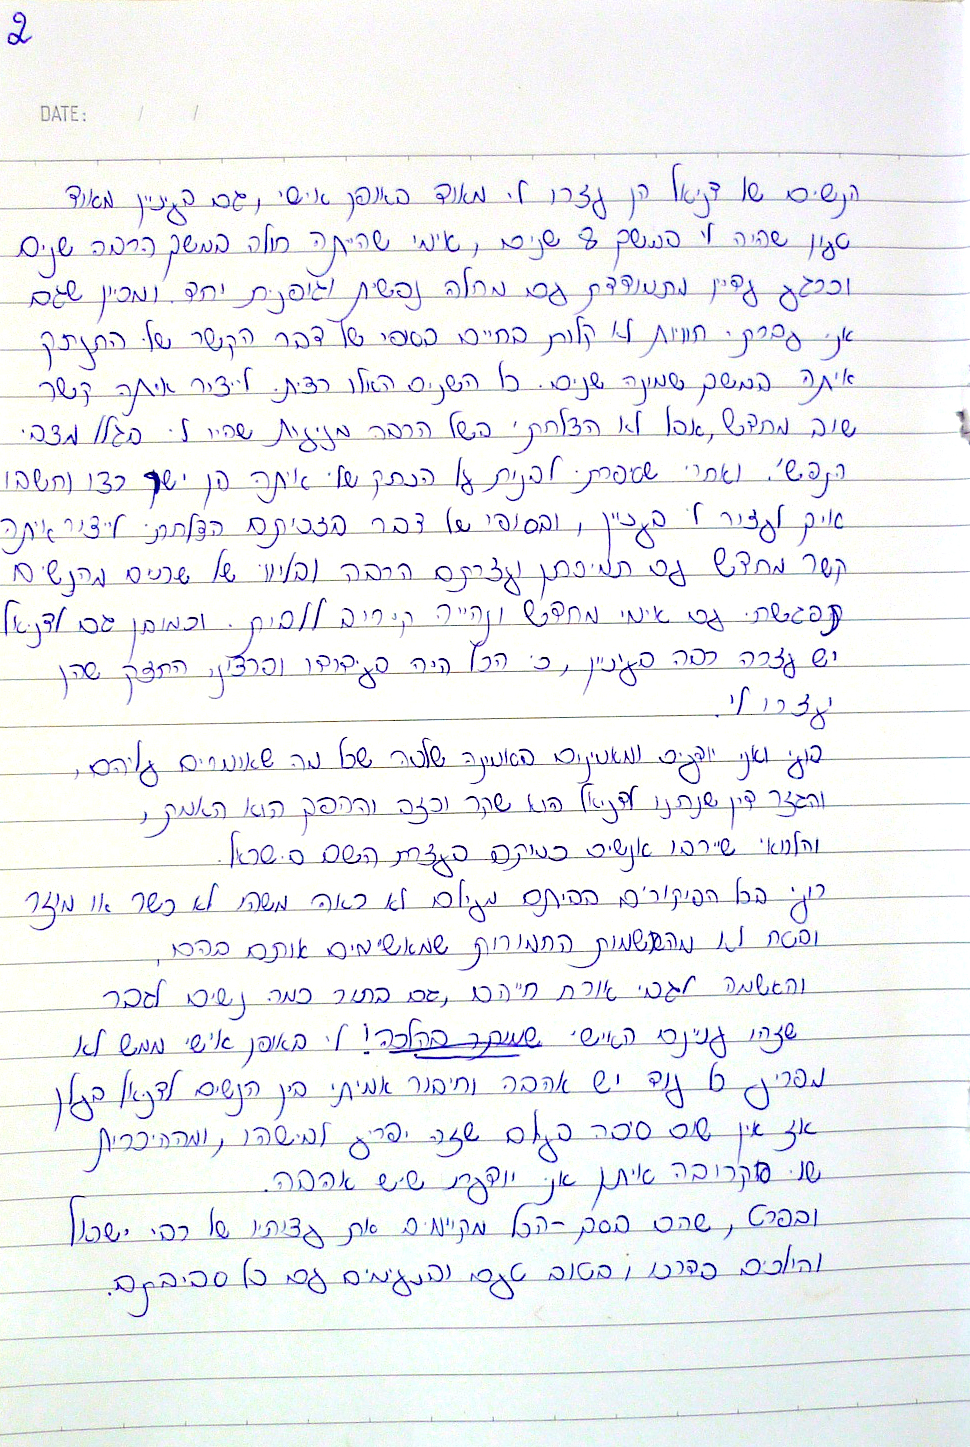 2
DATE: / /
הנשים של דניאל הן עזרו לי מאוד באופן אישי, גם בעיניין מאוד
טעון שהיה לי במשך 8 שנים, אימי שהייתה חולה במשך הרבה שנים
וכרגע עדיין מתמודדת עם מחלה נפשית וגופנית יחד. ומכיון שגם
אני עברתי חוויות לא קלות בחיים בסופו של דבר הקשר שלי התנתק
איתה במשך שמונה שנים. כל השנים האלו רציתי לייצור איתה קשר
שוב מחדש, אבל לא הצלחתי בשל הרבה מניעות שהיו לי בגלל מצבי
הנפשי. ואחרי שסיפרתי לבנות על הנתק שלי איתה הן ישר רצו וחשבו
איך לעזור לי בעניין, ובסופו של דבר בזכותם הצלחתי לייצור איתה
קשר מחדש עם תמיכתן ועזרתם הרבה ובליווי של שתיים מהנשים
נפגשתי עם אימי מחדש ונהייה קירוב ללבית. וכמובן גם לדניאל
יש עזרה רבה בעיניין, כי הכל היה בעידודו וברצונו החזק שהן
יעזרו לי.
רוני ואני יודעים ומאמינים באמונה שלמה שכל מה שאומרים עליהם,
והגזר דין שנתנו לדניאל הוא שקר וכזב וההפך הוא האמת,
והלוואי שירבו אנשים כמותם בעזרת השם בישראל.
רוני בכל הביקורים בביתם מעולם לא ראה משהו לא כשר או מוזר
ובטח לא מהאשמות החמורות שמאשימים אותם בהם,
והאשמה לגבי אורח חייהם, גם בתור כמה נשים לגבר
שזהו עניינם האישי שמותר בהלכה! לי באופן אישי ממש לא
מפריע כל עוד יש אהבה וחיבור אמיתי בין הנשים לדניאל בעלן
אז אין שום סיבה בעולם שזה יפריע למישהו, ומההיכרות
שלי הקרובה איתן אני יודעת שיש אהבה.
ובפרט, שהם בסך-הכל מקיימים את עצותיו של רבי ישראל
והולכים בדרכו, ובטוב טעם ובנעימים עם כל סביבתם.